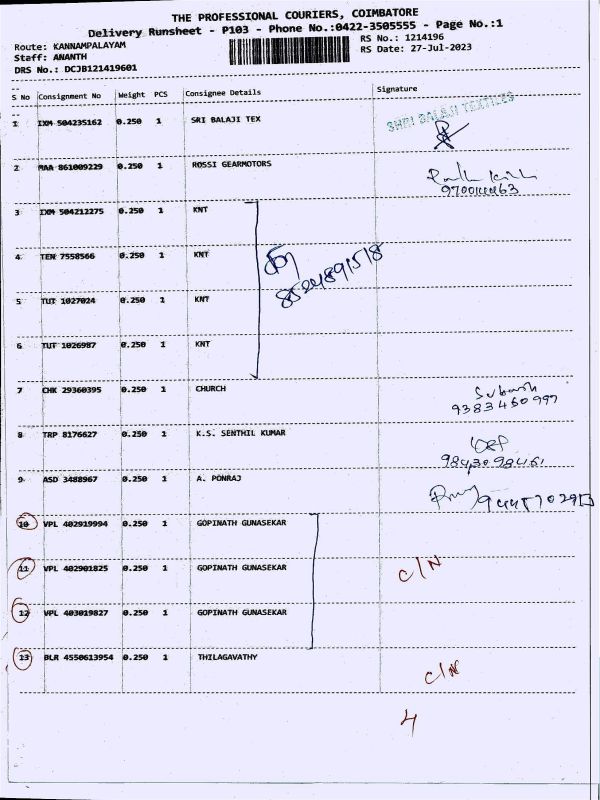 THE PROFESSIONAL COURIERS, COIMBATORE
Delivery Runsheet - P103 - Phone No.:0422-3505555 - Page No.:1
Route: KANNAMPALAYAM RS No.: 1214196
Staff: ANANTH RS Date: 27-Jul-2023
DRS No.: DCJB121419601
S No Consignment No Weight PCS Consignee Details Signature
1 IXM 504235162 0.250 1 SRI BALAJI TEX SHRI BALAJI TEXTILES
2 MAA 861009229 0.250 1 ROSSI GEARMOTORS
3 IXM 504212275 0.250 1 KNT
4 TEN 7558566 0.250 1 KNT
8524891518
5 TUT 1027024 0.250 1 KNT
6 TUT 1026987 0.250 1 KNT
7 CHK 29360395 0.250 1 CHURCH Subash
9383460997
8 TRP 8176627 0.250 1 K.S. SENTHIL KUMAR
9 ASD 3488967 0.250 1 A. PONRAJ
10 VPL 402919994 0.250 1 GOPINATH GUNASEKAR
11 VPL 402901825 0.250 1 GOPINATH GUNASEKAR C/N
12 VPL 403019827 0.250 1 GOPINATH GUNASEKAR
13 BLR 4550613954 0.250 1 THILAGAVATHY
C/N
4